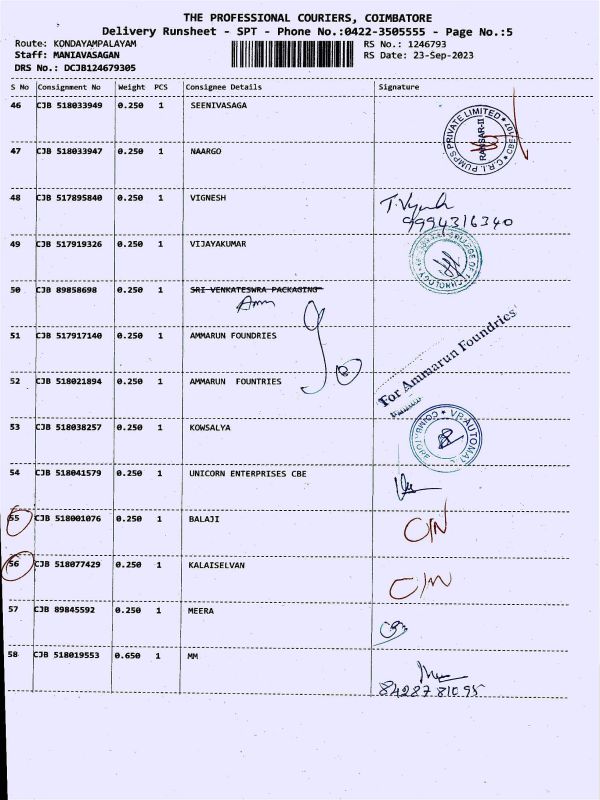 THE PROFESSIONAL COURIERS, COIMBATORE
Delivery Runsheet - SPT - Phone No.:0422-3505555 - Page No.:5
Route: KONDAYAMPALAYAM RS No.: 1246793
Staff: MANIAVASAGAN RS Date: 23-Sep-2023
DRS No.: DCJB124679305
S No Consignment No Weight PCS Consignee Details Signature
46 CJB 518033949 0.250 1 SEENIVASAGA
C.R.I. PUMPS PRIVATE LIMITED
47 CJB 518033947 0.250 1 NAARGO
48 CJB 517895840 0.250 1 VIGNESH
9994316340
49 CJB 517919326 0.250 1 VIJAYAKUMAR
COLLEGE OF TECHNOLOGY
50 CJB 89858698 0.250 1 SRI VENKATESWRA PACKAGING
51 CJB 517917140 0.250 1 AMMARUN FOUNDRIES
For Ammarun Foundries
52 CJB 518021894 0.250 1 AMMARUN FOUNTRIES
53 CJB 518038257 0.250 1 KOWSALYA
54 CJB 518041579 0.250 1 UNICORN ENTERPRISES CBE
55 CJB 518001076 0.250 1 BALAJI C/N
56 CJB 518077429 0.250 1 KALAISELVAN C/N
57 CJB 89845592 0.250 1 MEERA
58 CJB 518019553 0.650 1 MM
84287 81095